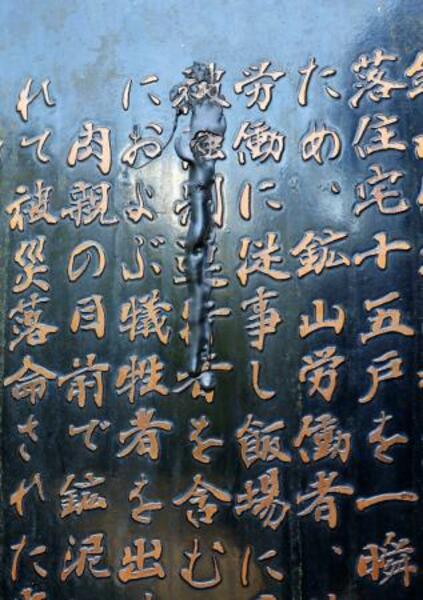 落住宅十五戸を一瞬
ため、鉱山労働者、
労働に従事し飯場に
被強制連行者を含む
におよぶ犠牲者を出
肉親の目前で鉱泥
れて被災落命された